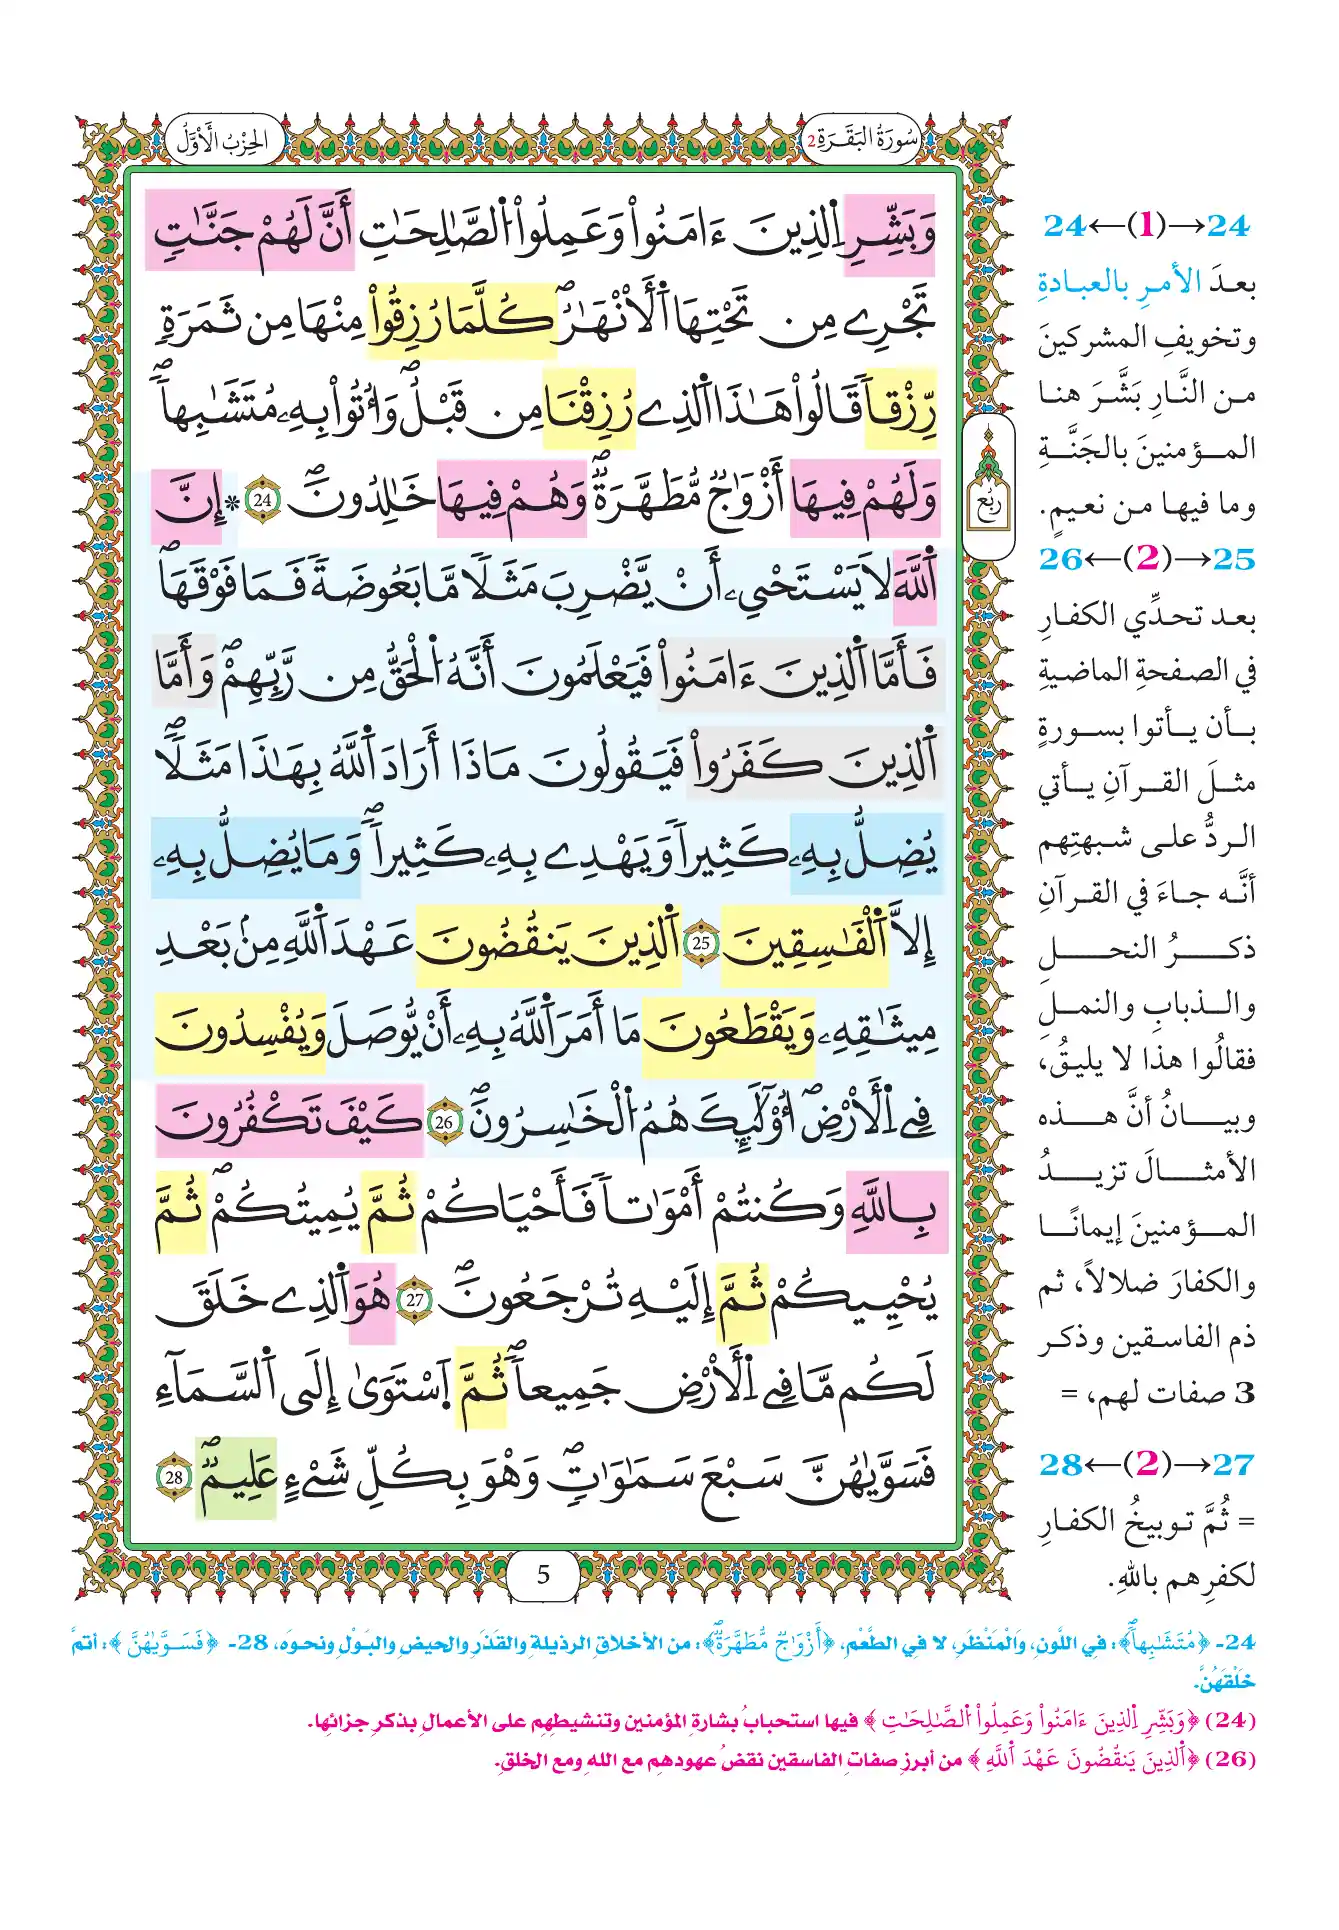 سُورَةُ البَقَرَةِ 2
الحِزْبُ الَأوَّلُ
وَبَشِّرِ اِ۬لذِينَ ءَامَنُواْ وَعَمِلُواْ اُ۬لصَّٰلِحَٰتِ أَنَّ لَهُمْ جَنَّٰتٖ
تَجْرِے مِن تَحْتِهَا اَ۬لَانْهَٰرُۖ كُلَّمَا رُزِقُواْ مِنْهَا مِن ثَمَرَةٖ
رِّزْقاٗ قَالُواْ هَٰذَا اَ۬لذِے رُزِقْنَا مِن قَبْلُۖ وَأُتُواْ بِهِۦ مُتَشَٰبِهاٗۖ
وَلَهُمْ فِيهَا أَزْوَٰجٞ مُّطَهَّرَةٞۖ وَهُمْ فِيهَا خَٰلِدُونَۖ 24 * إِنَّ
اَ۬للَّهَ لَا يَسْتَحْيِۦ أَنْ يَّضْرِبَ مَثَلاٗ مَّا بَعُوضَةٗ فَمَا فَوْقَهَاۖ
فَأَمَّا اَ۬لذِينَ ءَامَنُواْ فَيَعْلَمُونَ أَنَّهُ اُ۬لْحَقُّ مِن رَّبِّهِمْۖ وَأَمَّا
اَ۬لذِينَ كَفَرُواْ فَيَقُولُونَ مَاذَا أَرَادَ اَ۬للَّهُ بِهَٰذَا مَثَلاٗۖ
يُضِلُّ بِهِۦ كَثِيراٗ وَيَهْدِے بِهِۦ كَثِيراٗۖ وَمَا يُضِلُّ بِهِۦ
إِلَّا اَ۬لْفَٰسِقِينَ 25 اَ۬لذِينَ يَنقُضُونَ عَهْدَ اَ۬للَّهِ مِنۢ بَعْدِ
مِيثَٰقِهِۦ وَيَقْطَعُونَ مَا أَمَرَ اَ۬للَّهُ بِهِۦ أَنْ يُّوصَلَ وَيُفْسِدُونَ
فِے اِ۬لَارْضِۖ أُوْلَٰٓئِكَ هُمُ اُ۬لْخَٰسِرُونَۖ 26 كَيْفَ تَكْفُرُونَ
بِاللَّهِ وَكُنتُمْ أَمْوَٰتاٗ فَأَحْيَاكُمْ ثُمَّ يُمِيتُكُمْۖ ثُمَّ
يُحْيِيكُمْ ثُمَّ إِلَيْهِ تُرْجَعُونَۖ 27 هُوَ اَ۬لذِے خَلَقَ
لَكُم مَّا فِے اِ۬لَارْضِ جَمِيعاٗۖ ثُمَّ اَ۪سْتَوَىٰ إِلَى اَ۬لسَّمَآءِ
فَسَوَّىٰهُنَّ سَبْعَ سَمَٰوَٰتٖۖ وَهْوَ بِكُلِّ شَےْءٍ عَلِيمٞۖ 28
رُبُع
5
24←(1)→24
بعدَ الأمرِ بالعبادةِ
وتخويفِ المشركينَ
من النَّارِ بَشَّرَ هنا
المؤمنينَ بالجَنَّةِ
وما فيها من نعيمٍ.
26←(2)→25
بعد تحدِّي الكفارِ
في الصفحةِ الماضيةِ
بأن يأتوا بسورةٍ
مثلَ القرآنِ يأتي
الردُّ على شبهتِهم
أنَّه جاءَ في القرآنِ
ذكرُ النحلِ
والذبابِ والنملِ
فقالُوا هذا لا يليقُ،
وبيانُ أنَّ هذه
الأمثالَ تزيدُ
المؤمنينَ إيمانًا
والكفارَ ضلالاً، ثم
ذم الفاسقين وذكر
3 صفات لهم، =
28←(2)→27
= ثُمَّ توبيخُ الكفارِ
لكفرِهم باللهِ.
24- ﴿مُتَشَٰبِهاٗۖ﴾: في اللَّونِ، وَالْمَنْظَرِ، لا في الطَّعْمِ، ﴿أَزْوَٰجٞ مُّطَهَّرَةٞۖ﴾: من الأخلاقِ الرذيلةِ والقَذَرِ والحيضِ والبَوْلِ ونحوَه، 28- ﴿فَسَوَّىٰهُنَّ﴾: أتمَّ
خَلْقَهُنَّ.
(24) ﴿وَبَشِّرِ اِ۬لذِينَ ءَامَنُواْ وَعَمِلُواْ اُ۬لصَّٰلِحَٰتِ﴾ فيها استحبابُ بشارةِ المؤمنين وتنشيطهم على الأعمالِ بذكرِ جزائها.
(26) ﴿اَ۬لذِينَ يَنقُضُونَ عَهْدَ اَ۬للَّهِ﴾ من أبرزِ صفاتِ الفاسقين نقضُ عهودهم مع اللهِ ومع الخلقِ.